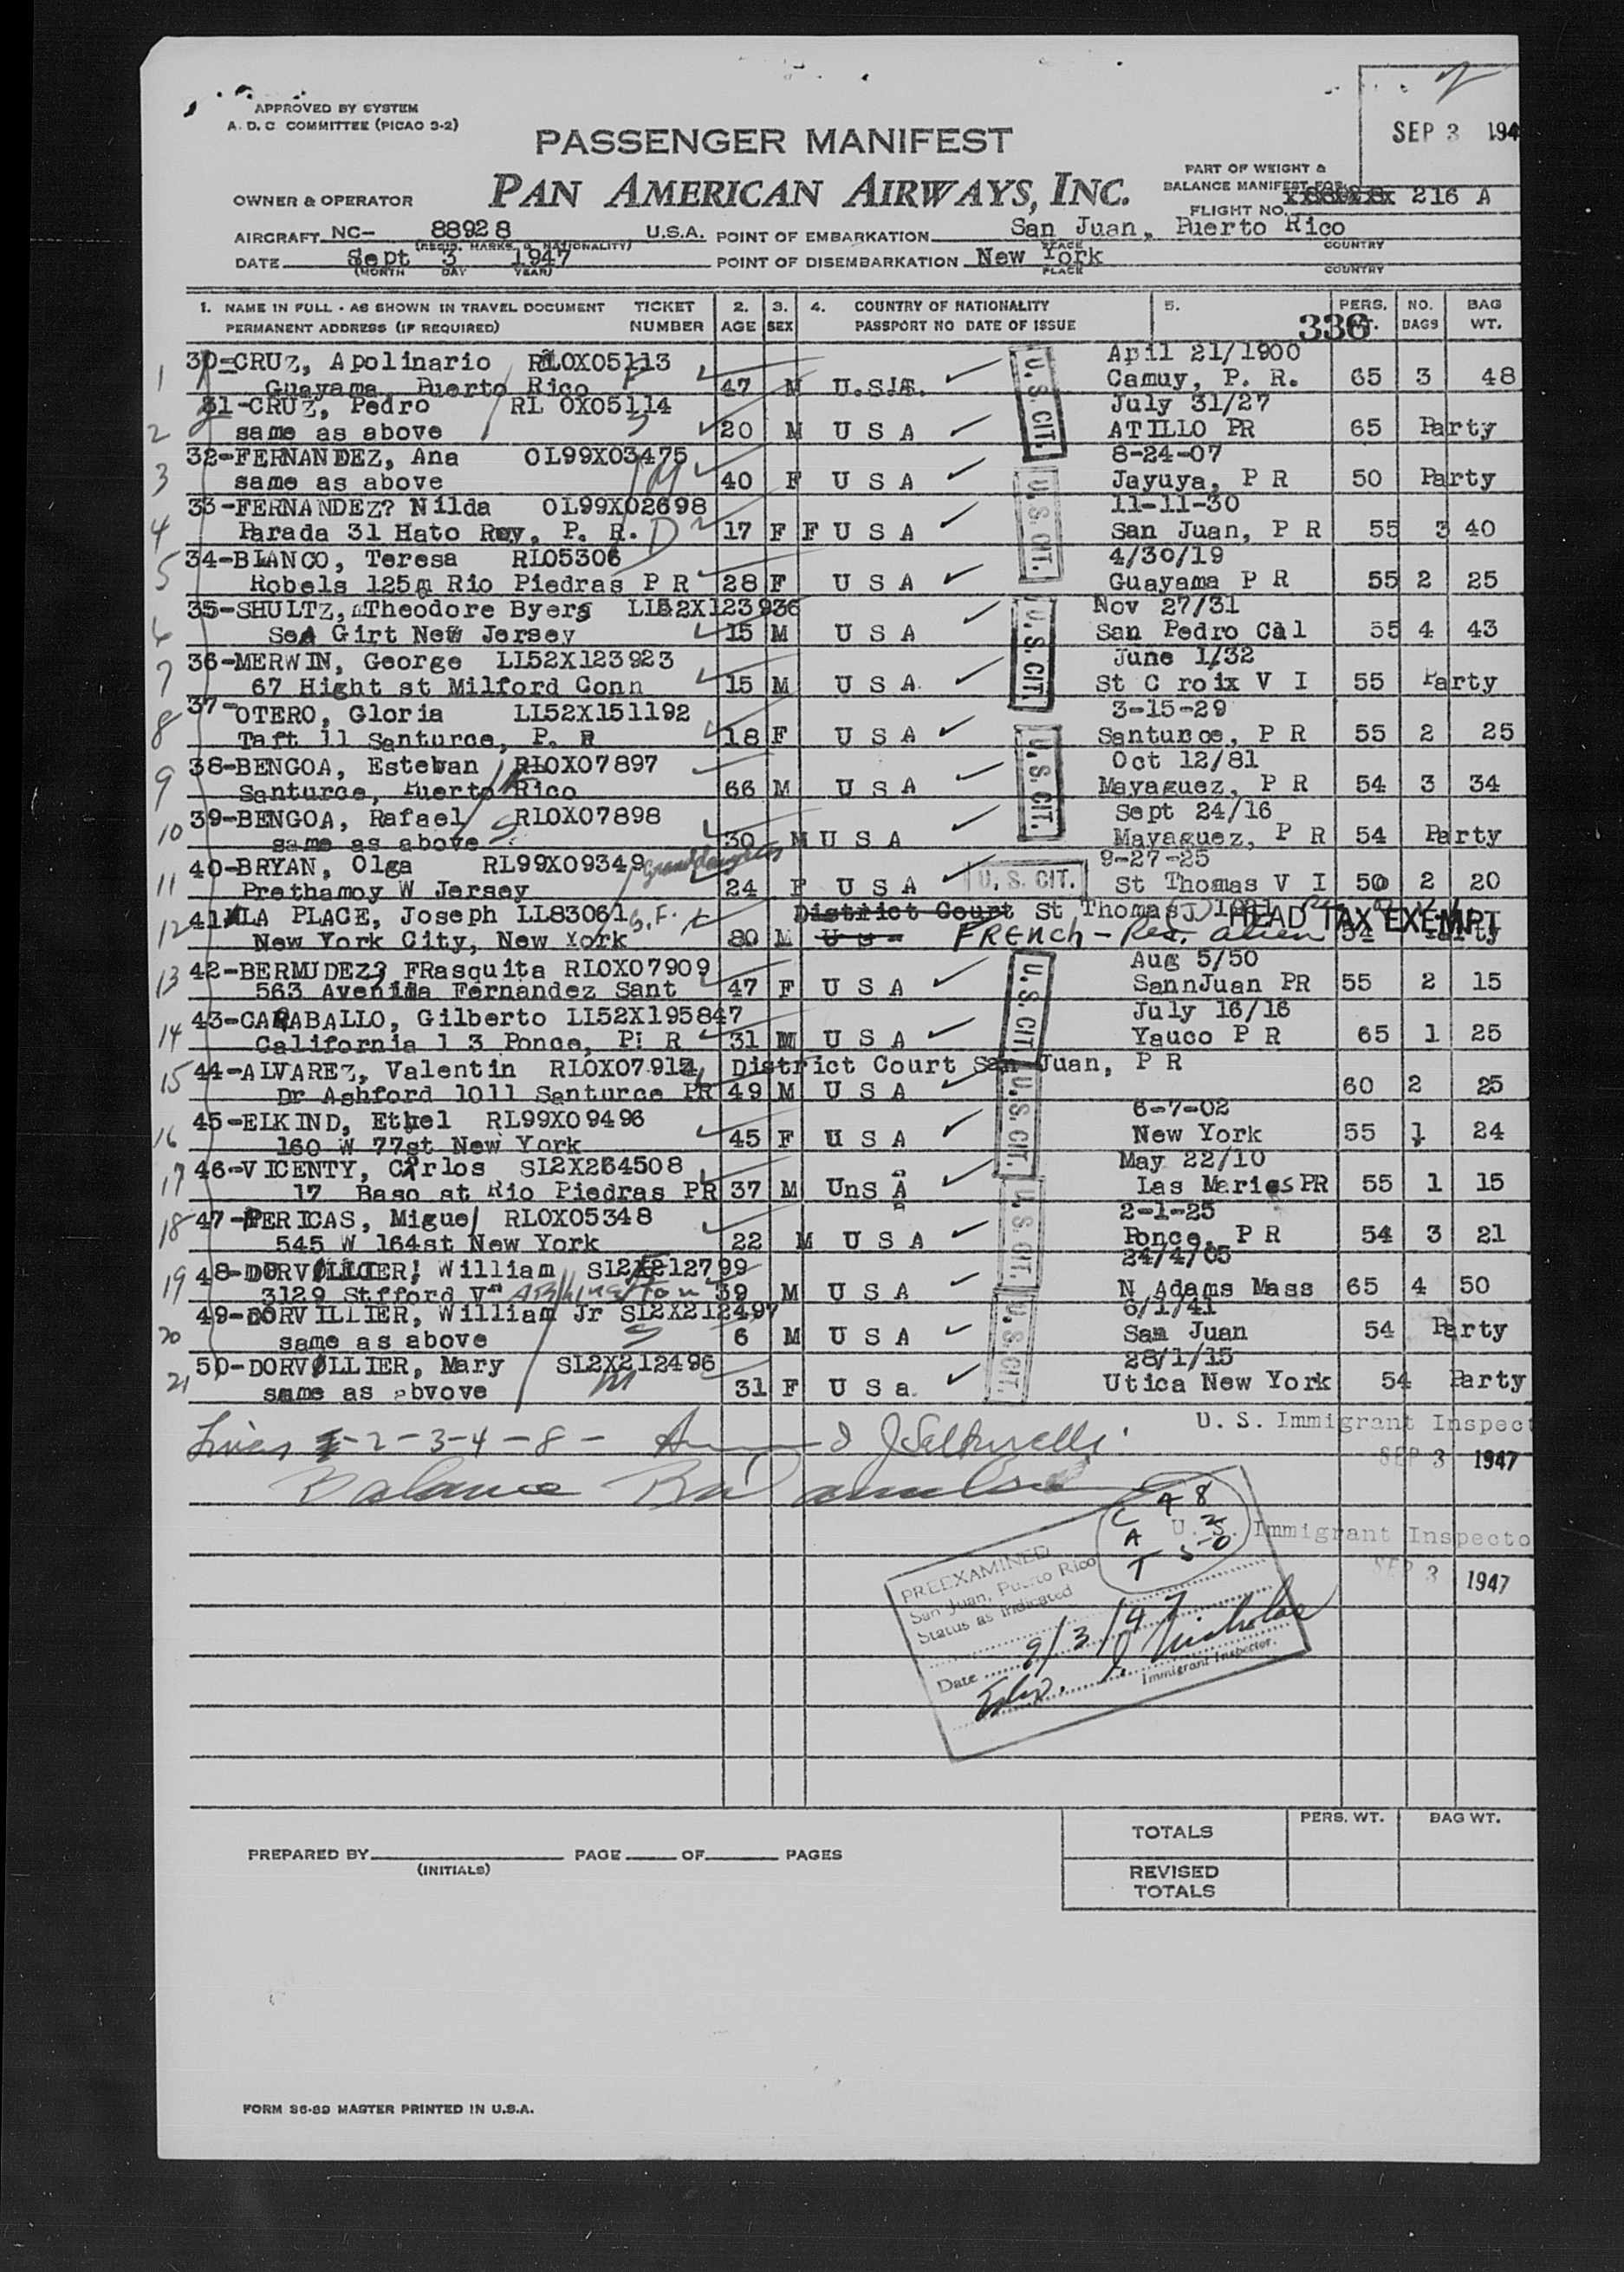 APPROVED BY SYSTEM
A. D. C COMMITTEE (PICAO 9-2)
SEP 3 194
PASSENGER MANIFEST
PART OF WEIGHT &
BALANCE MANIFEST FOR
OWNER & OPERATOR PAN AMERICAN AIRWAYS, INC.
FLIGHT NO. 216 A
AIRCRAFT NC- 88928 U.S.A. POINT OF EMBARKATION San Juan, Puerto Rico
(REGIS. MARKS & NATIONALITY) PLACE COUNTRY
DATE Sept 3 1947 POINT OF DISEMBARKATION New York
(MONTH DAY YEAR) PLACE COUNTRY
1. NAME IN FULL - AS SHOWN IN TRAVEL DOCUMENT TICKET 2. 3. 4. COUNTRY OF NATIONALITY 5. PERS. NO. BAG
PERMANENT ADDRESS (IF REQUIRED) NUMBER AGE SEX PASSPORT NO DATE OF ISSUE 336 WT. BAGS WT.
30-CRUZ, Apolinario RLOX05113 April 21/1900
1 Guayama, Puerto Rico 47 M U.S.A. Camuy, P. R. 65 3 48
31-CRUZ, Pedro RL OX05114 July 31/27
2 same as above 20 M U S A ATILLO PR 65 Party
32-FERNANDEZ, Ana OL99X03475 8-24-07
3 same as above 40 F U S A Jayuya, P R 50 Party
33-FERNANDEZ? Nilda OL99X02698 11-11-30
4 Parada 31 Hato Rey, P. R. D 17 F F U S A San Juan, P R 55 3 40
34-BLANCO, Teresa RLO5306 4/30/19
5 Robels 125m Rio Piedras P R 28 F U S A Guayama P R 55 2 25
35-SHULTZ, Theodore Byers LL52X123936 Nov 27/31
6 Sea Girt New Jersey 15 M U S A San Pedro Cal 55 4 43
36-MERWIN, George LL52X123923 June 1/32
7 67 Hight st Milford Conn 15 M U S A St C roix V I 55 Party
37-OTERO, Gloria LL52X151192 3-15-29
8 Taft 11 Santurce, P. R 18 F U S A Santurce, P R 55 2 25
38-BENGOA, Estevan RLOX07897 Oct 12/81
9 Santurce, Puerto Rico 66 M U S A Mayaguez, P R 54 3 34
39-BENGOA, Rafael S RLOX07898 Sept 24/16
10 same as above 30 M U S A Mayaguez, P R 54 Party
40-BRYAN, Olga RL99X09349 Granddaughter 9-27-25
11 Prethamoy W Jersey 24 F U S A U. S. CIT. St Thomas V I 50 2 20
41-LA PLACE, Joseph LL83061 G.F. District Court St Thomas HEAD TAX EXEMPT
12 New York City, New York 80 M U S A FRENCH - Res. alien 54 Party
42-BERMUDEZ, FRasquita RLOX07909 Aug 5/50
13 563 Avenida Fernandez Sant 47 F U S A SannJuan PR 55 2 15
43-CARABALLO, Gilberto LL52X195847 July 16/16
14 California 1 3 Ponce, P. R 31 M U S A Yauco P R 65 1 25
44-ALVAREZ, Valentin RLOX07912 District Court San Juan, P R
15 Dr Ashford 1011 Santurce PR 49 M U S A 60 2 25
45-ELKIND, Ethel RL99X09496 6-7-02
16 160 W 77st New York 45 F U S A New York 55 1 24
46-VICENTY, Carlos SL2X264508 May 22/10
17 17 Baso st Rio Piedras PR 37 M UnS A Las Maries PR 55 1 15
47-PERICAS, Miguel RLOX05348 2-1-25
18 545 W 164st New York 22 M U S A Ponce, P R 54 3 21
48-DORVILLIER, William SL2X212799 24/4/05
19 3129 Stfford Va Arlington 39 M U S A N Adams Mass 65 4 50
49-DORVILLIER, William Jr SL2X212497 6/1/41
20 same as above S 6 M U S A San Juan 54 Party
50-DORVILLIER, Mary SL2X212496 28/1/15
21 same as abvove M 31 F U S a Utica New York 54 Party
U. S. CIT.
U. S. CIT.
U. S. CIT.
U. S. CIT.
U. S. CIT.
U. S. CIT.
U. S. CIT.
U. S. CIT.
U. S. Immigrant Inspect
Lines 1-2-3-4-8-
SEP 3 1947
Balance
U. S. Immigrant Inspecto
SEP 3 1947
PREEXAMINED
San Juan, Puerto Rico
Status as indicated
Date 9/3/47
Immigrant Inspector.
TOTALS PERS. WT. BAG WT.
PREPARED BY PAGE OF PAGES
(INITIALS)
REVISED
TOTALS
FORM 86-89 MASTER PRINTED IN U.S.A.